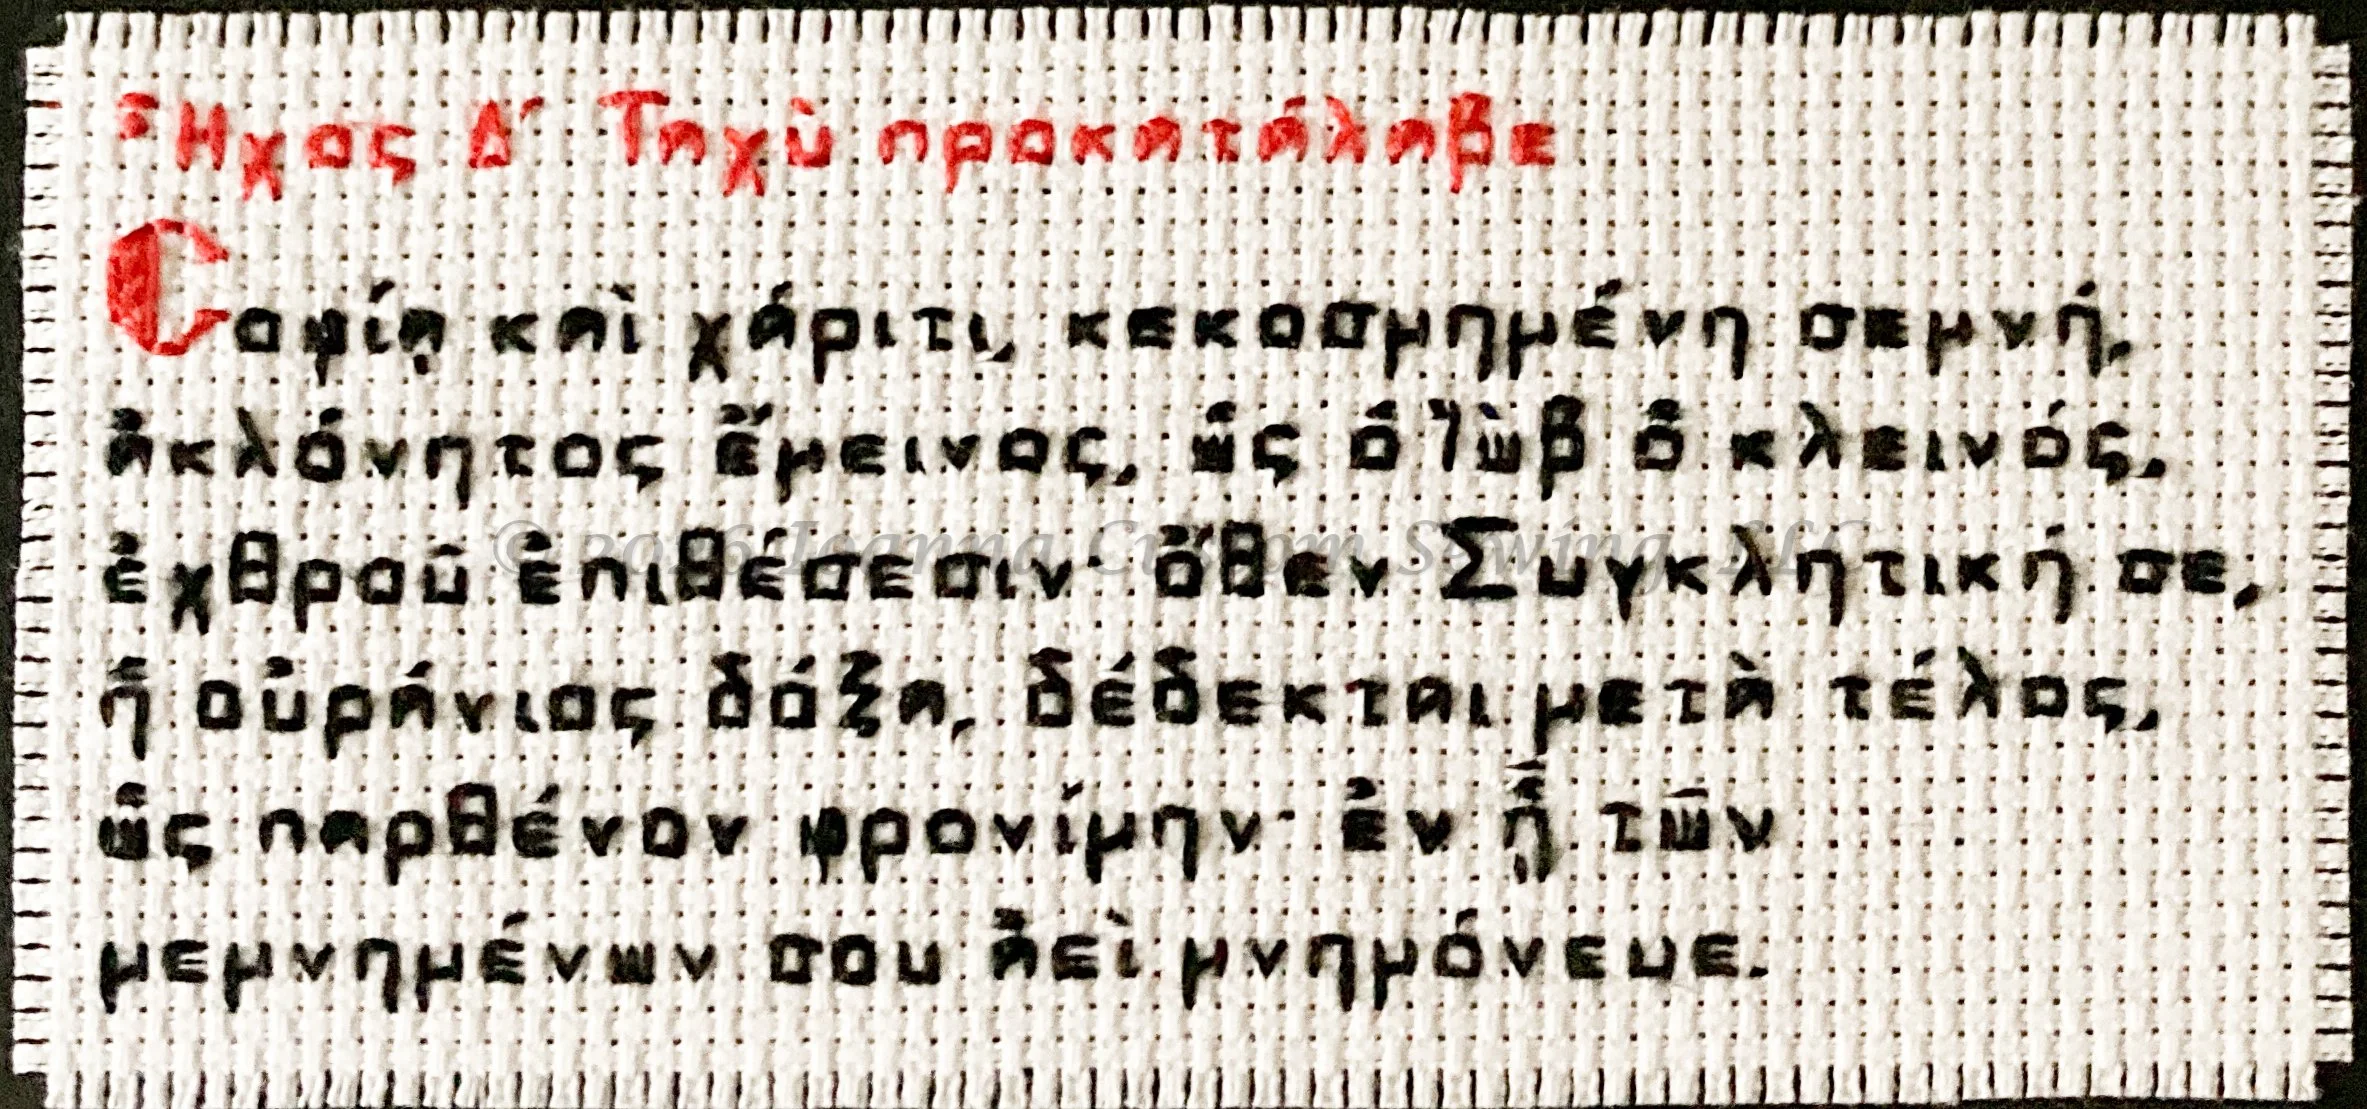 Ἦχος Δ´ Ταχὺ προκατάλαβε
Σοφίᾳ καὶ χάριτι, κεκοσμημένη σεμνή,
ἀκλόνητος ἔμεινας, ὡς ὁ Ἰὼβ ὁ κλεινός,
ἐχθροῦ ἐπιθέσεσιν· ὅθεν Συγκλητική σε,
ἡ οὐράνιος δόξα, δέδεκται μετὰ τέλος,
ὡς παρθένον φρονίμην· ἐν ᾗ τῶν
μεμνημένων σου ἀεὶ μνημόνευε.
© 2026 Ioanna Custom Sewing, LLC